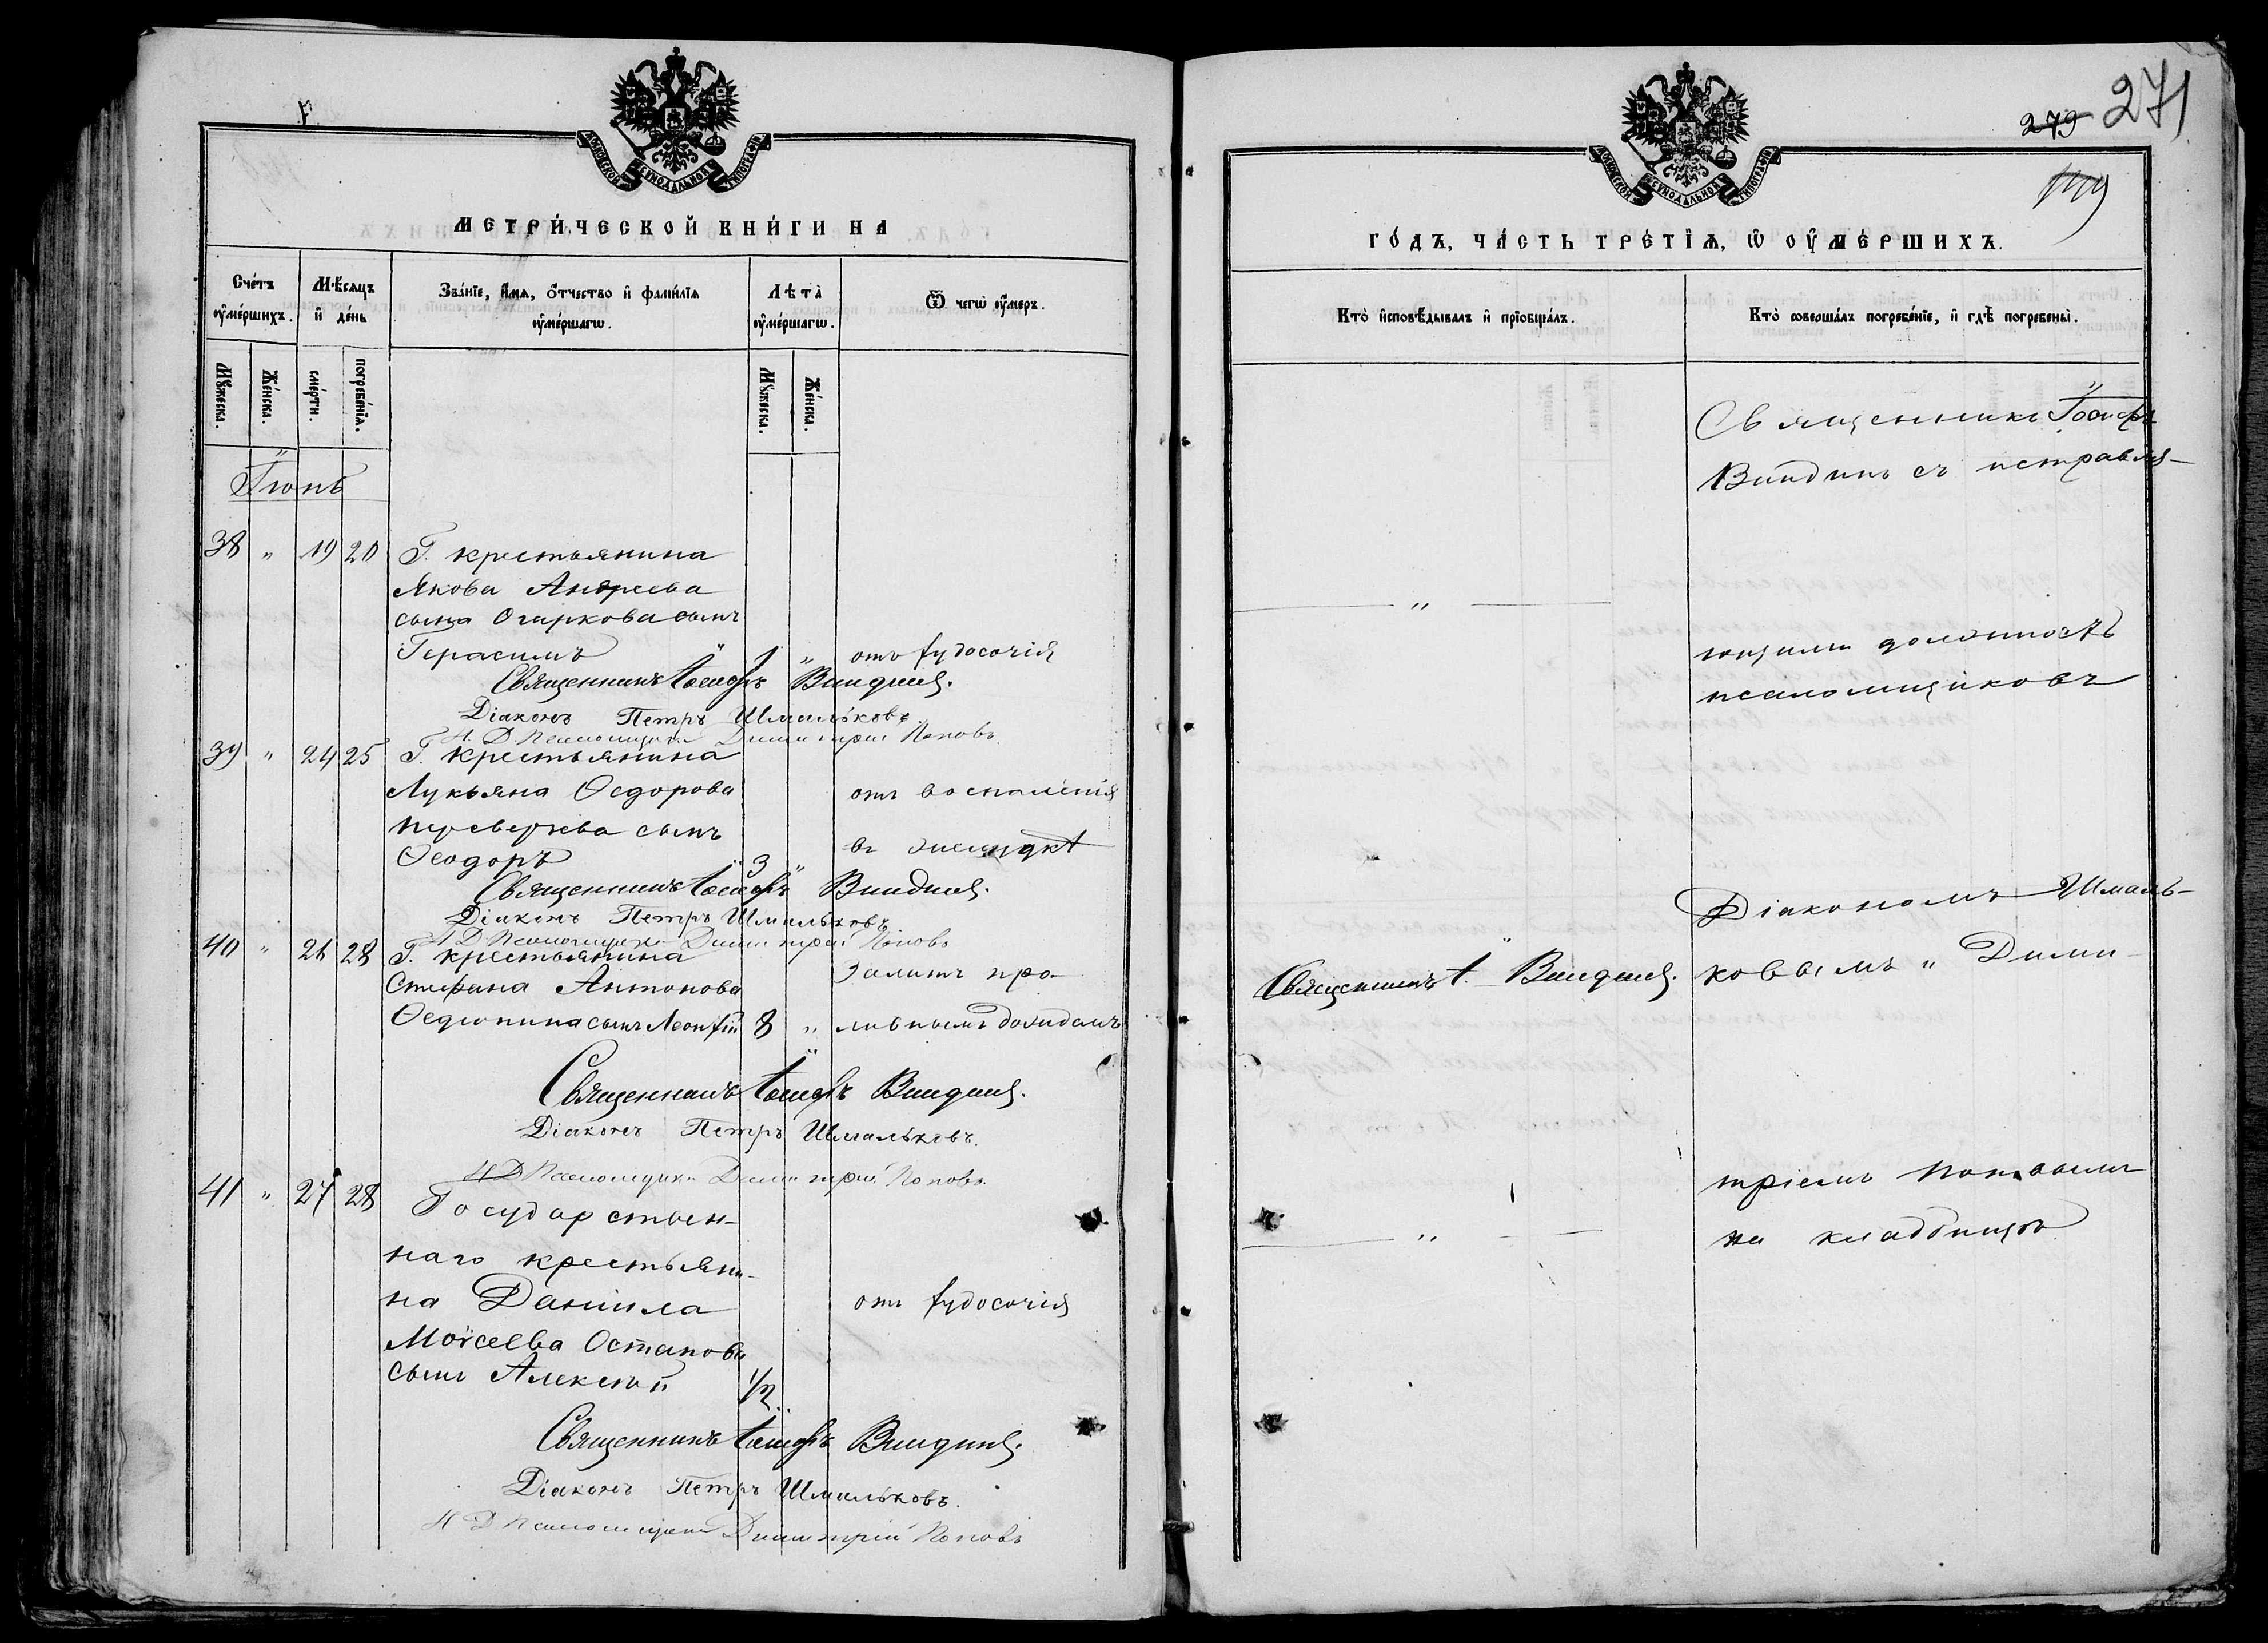 МОСКОВСКОЙ СѴНОДАЛЬНОЙ ТИПОГРАФІИ
МЕТРИ́ЧЕСКОЙ КНИ́ГИ НА
Сче́тъ ᲂу҆ме́ршихъ.
Мѣ́сяцъ и҆ де́нь
Зва́нїе, и҆́мя, ѻ҆́тчество и҆ фамилїя ᲂу҆ме́ршагѡ.
Лѣта̀ ᲂу҆ме́ршагѡ.
Ѿ чегѡ̀ ᲂу҆́меръ.
Мꙋ́жеска.
Же́нска.
сме́рти.
погребе́нїѧ.
Мꙋ́жеска.
Же́нска.
Іюнь
38 " 19 20 Г. крестьянина
Якова Андреева
сына Огаркова сынъ
Герасимъ 1 " отъ худосочія
Священникъ Іосифъ Виндинъ.
Діаконъ Петръ Шмальковъ.
И. Д. Псаломщика Димитрій Поповъ
39 " 24 25 Г. крестьянина
Лукьяна Ѳедорова отъ воспаленія
Переверзева сынъ въ желудкѣ
Ѳеодоръ 3 "
Священникъ Іосифъ Виндинъ.
Діаконъ Петръ Шмальковъ
И Д Псаломщика Димитрій Поповъ
40 " 26 28 Г. крестьянина
Стефана Антонова залитъ про-
Ѳедюнина сынъ Леонтій 8 " ливнымъ дождемъ
Священникъ Іосифъ Виндинъ.
Діаконъ Петръ Шмальковъ.
И Д Псаломщика Димитрій Поповъ
41 " 27 28 Государствен-
наго крестьяни-
на Даніила отъ худосочія
Моѵсеева Останова
сынъ Алексѣй 1/2
Священникъ Іосифъ Виндинъ.
Діаконъ Петръ Шмальковъ.
И Д Псаломщика Димитрій Поповъ
279 271
МОСКОВСКОЙ СѴНОДАЛЬНОЙ ТИПОГРАФІИ
ГО́ДЪ, ЧА́СТЬ ТРЕ́ТЇѦ, Ѡ҆ ОУ҆МЕ́РШИХЪ.
Кто̀ и҆сповѣ́дывалъ и҆ прїѡбща́лъ.
Кто̀ соверша́лъ погребе́нїе, и҆ гдѣ̀ погребены̀.
Священникъ Іосифъ
Виндинъ съ исправля-
"
ющими должность
псаломщиковъ
Діакономъ Шмаль-
Священникъ І. Виндинъ. ковымъ и Дими-
тріемъ Поповымъ
" на кладбищѣ